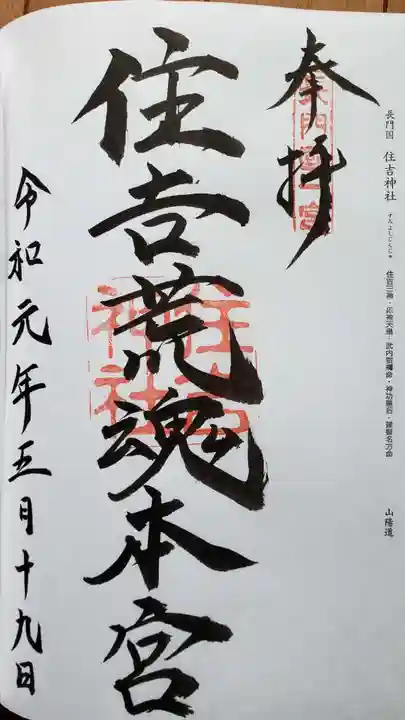 長門国 住吉神社 すみよしじんじゃ 住吉三神・応神天皇・武内宿禰命・神功皇后・建御名方命 山陽道
奉拝
長門國一宮
住吉荒魂本宮
住吉神社
令和元年五月十九日